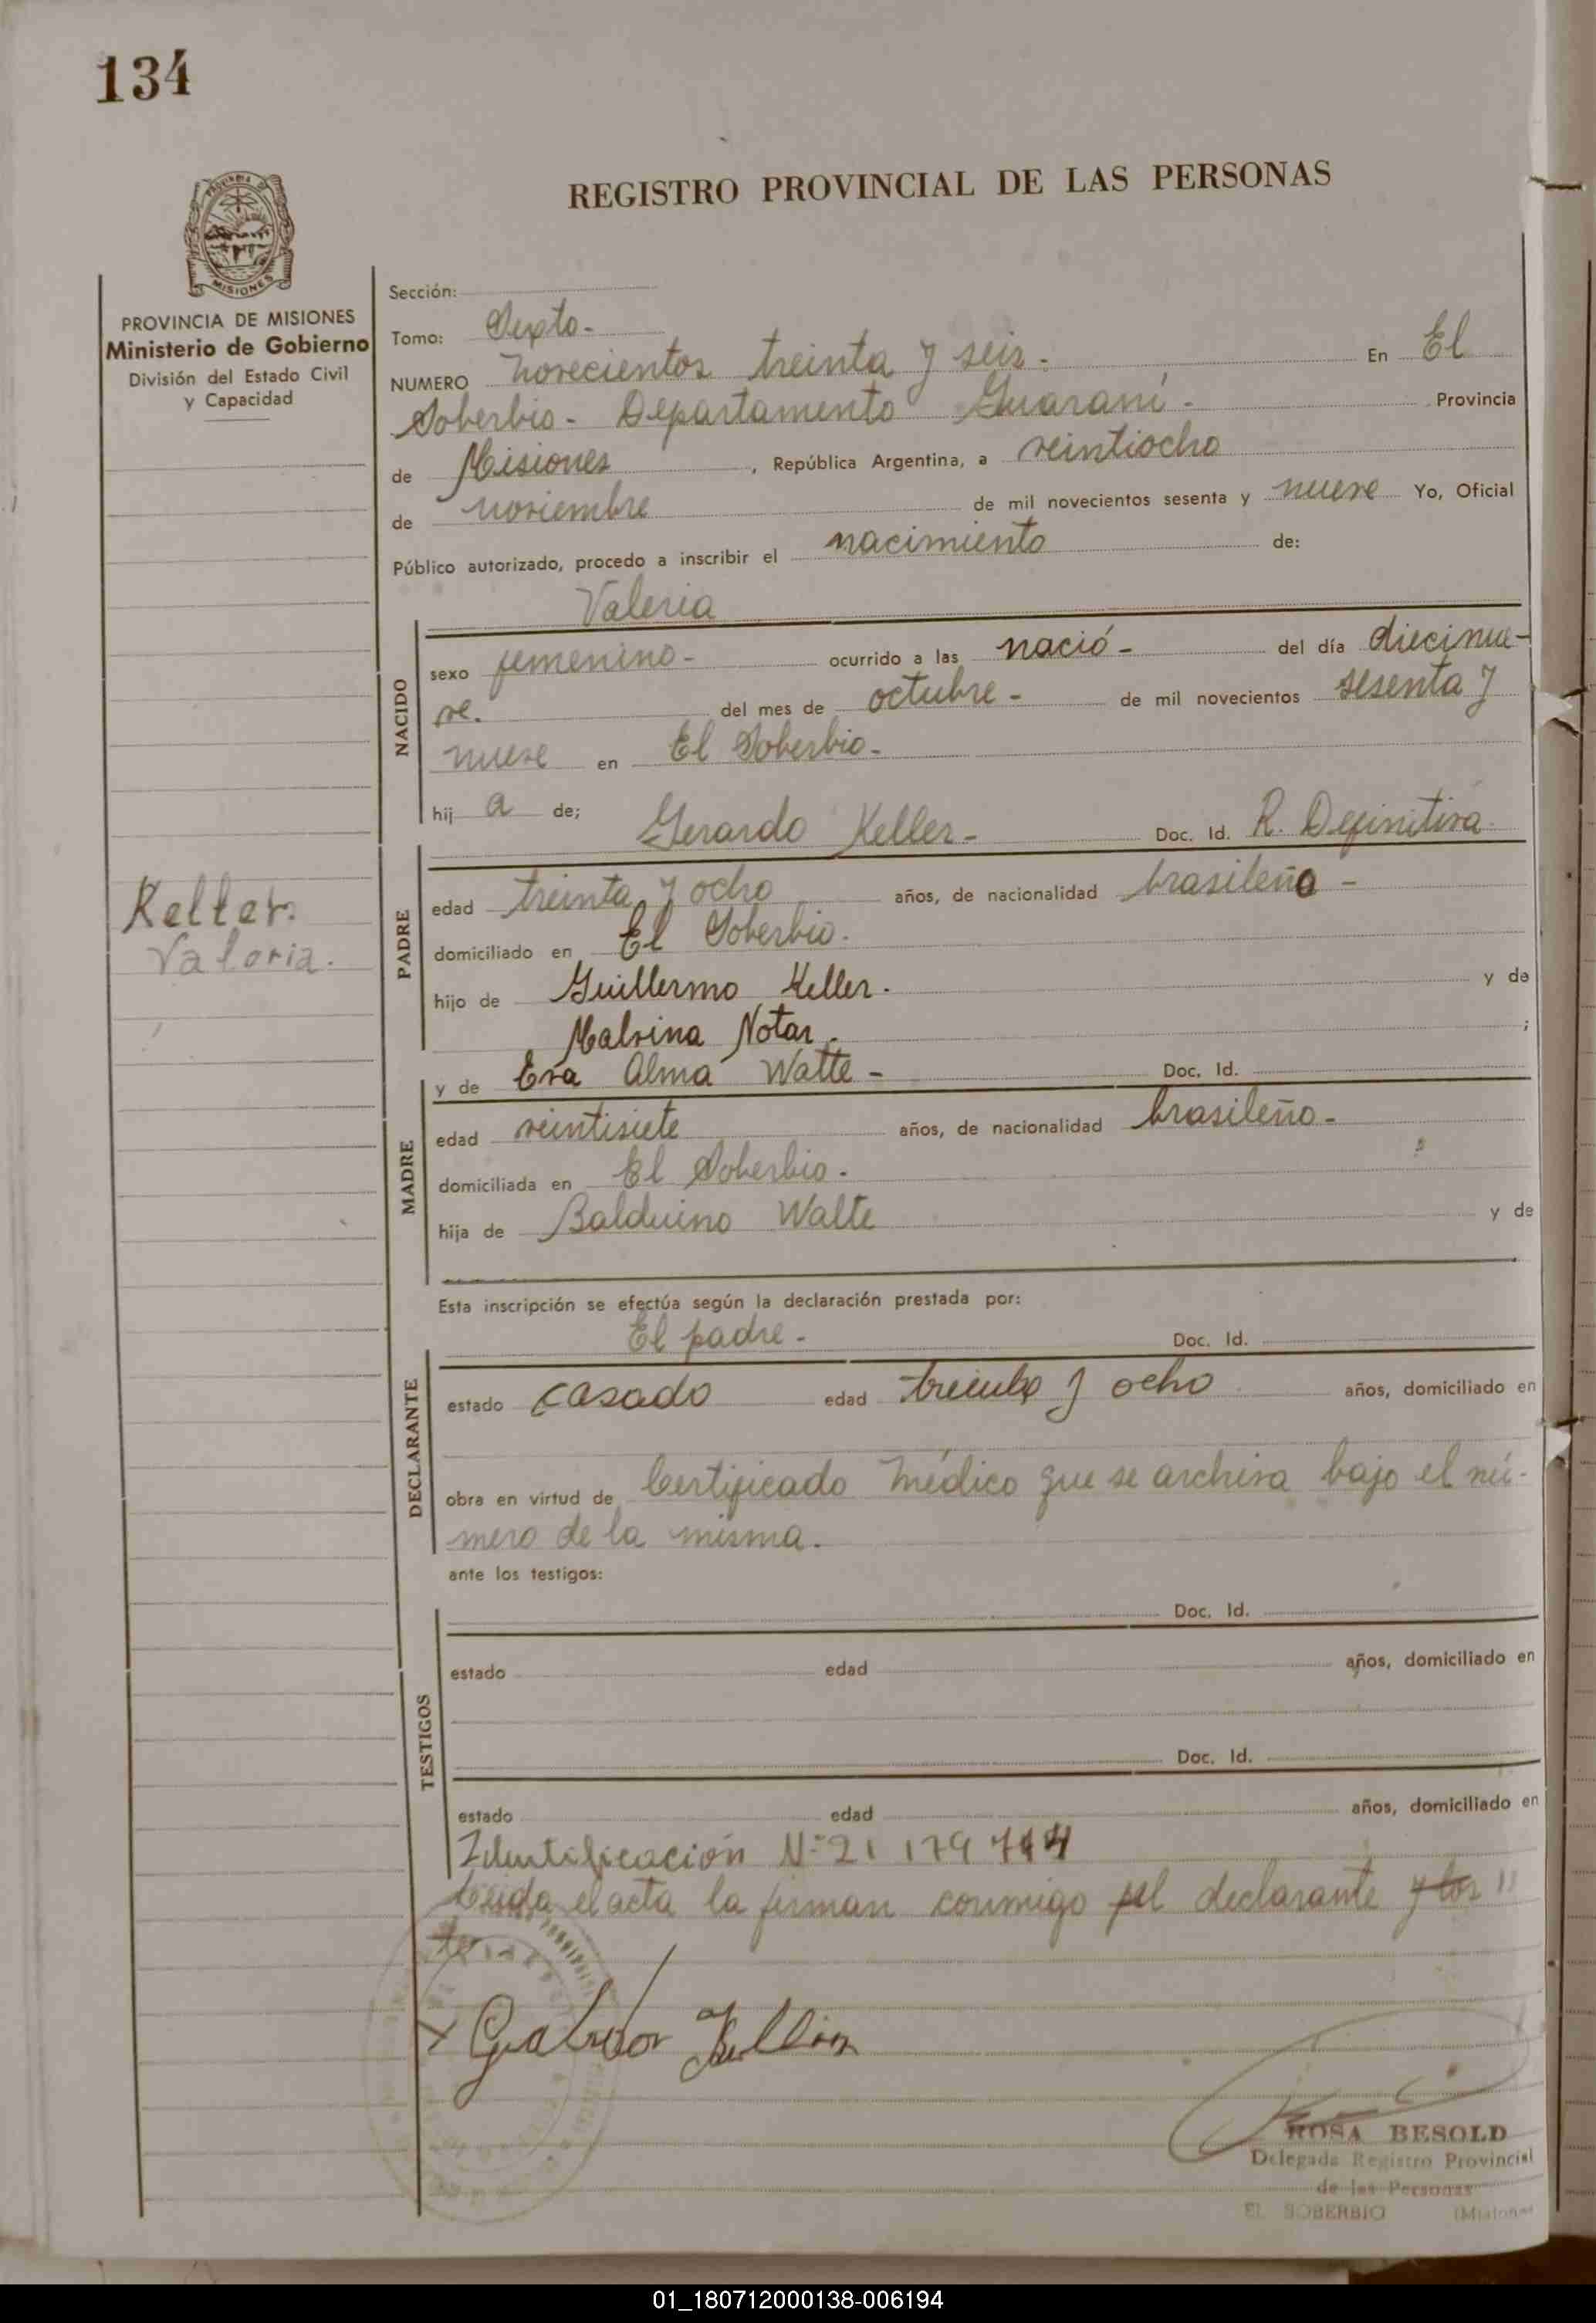 134
REGISTRO PROVINCIAL DE LAS PERSONAS
PROVINCIA DE MISIONES
Ministerio de Gobierno
División del Estado Civil
y Capacidad
Sección:
Tomo: Sexto.-
NUMERO novecientos treinta y seis.- En El
Soberbio.- Departamento Guaraní.- Provincia
de Misiones, República Argentina, a veintiocho
de noviembre de mil novecientos sesenta y nueve Yo, Oficial
Público autorizado, procedo a inscribir el nacimiento de:
Valeria
NACIDO
sexo femenino- ocurrido a las nació- del día diecinue-
ve. del mes de octubre- de mil novecientos sesenta y
nueve en El Soberbio-
hij a de;
Gerardo Keller- Doc. Id. R. Definitiva
Keller.
Valeria.
PADRE
edad treinta y ocho años, de nacionalidad brasileña-
domiciliado en El Soberbio.
hijo de Guillermo Keller. y de
Malvina Notar. ;
y de Eva Alma Watte- Doc. Id.
MADRE
edad veintisiete años, de nacionalidad brasileño-
domiciliada en El Soberbio.
hija de Balduino Walte y de
Esta inscripción se efectúa según la declaración prestada por:
El padre- Doc. Id.
DECLARANTE
estado casado edad treinta y ocho años, domiciliado en
obra en virtud de Certificado médico que se archiva bajo el nú-
mero de la misma.
ante los testigos:
Doc. Id.
TESTIGOS
estado edad años, domiciliado en
Doc. Id.
estado edad años, domiciliado en
Identificación Nº 21 179
Leída el acta la firman conmigo el declarante y los
ROSA BESOLD
Delegada Registro Provincial
de las Personas
EL SOBERBIO (Misiones
01_180712000138-006194